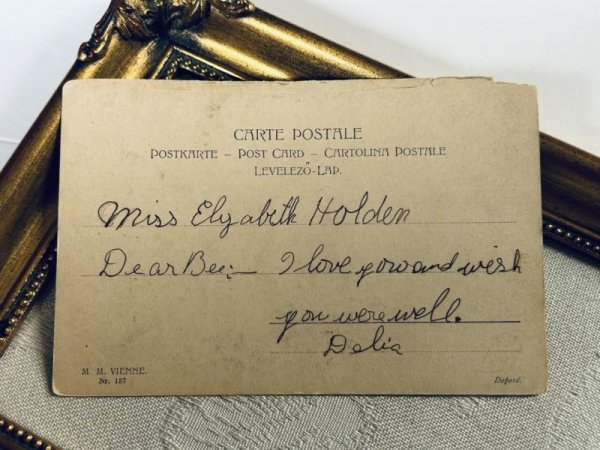 CARTE POSTALE
POSTKARTE – POST CARD – CARTOLINA POSTALE
LEVELEZŐ-LAP.
Miss Elyzabeth Holden
Dear Bee:— I love you and wish
you were well.
Delia
M. M. VIENNE.
Nr. 137
Deposé.